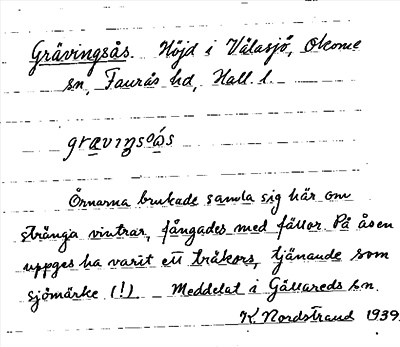 Grävingsås. Höjd i Välasjö, Okome
sn, Faurås hd, Hall. l.
grævıŋsoás
Örnarna brukade samla sig här om
stränga vintrar, fångades med fällor. På åsen
uppges ha varit ett träkors, tjänande som
sjömärke (!) Meddelat i Gällareds sn.
K. Nordstrand 1939